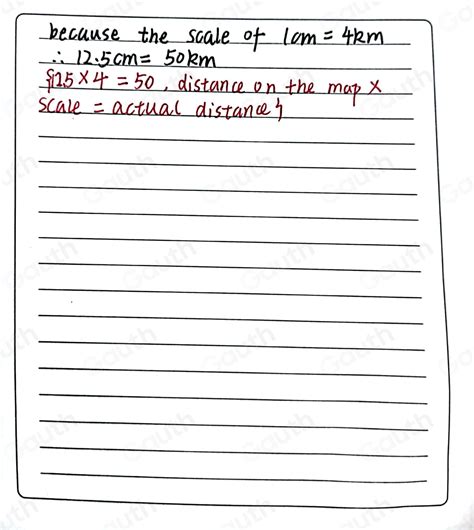 because the scale of 1cm = 4km
∴ 12.5cm = 50km
{12.5 × 4 = 50, distance on the map ×
scale = actual distance}